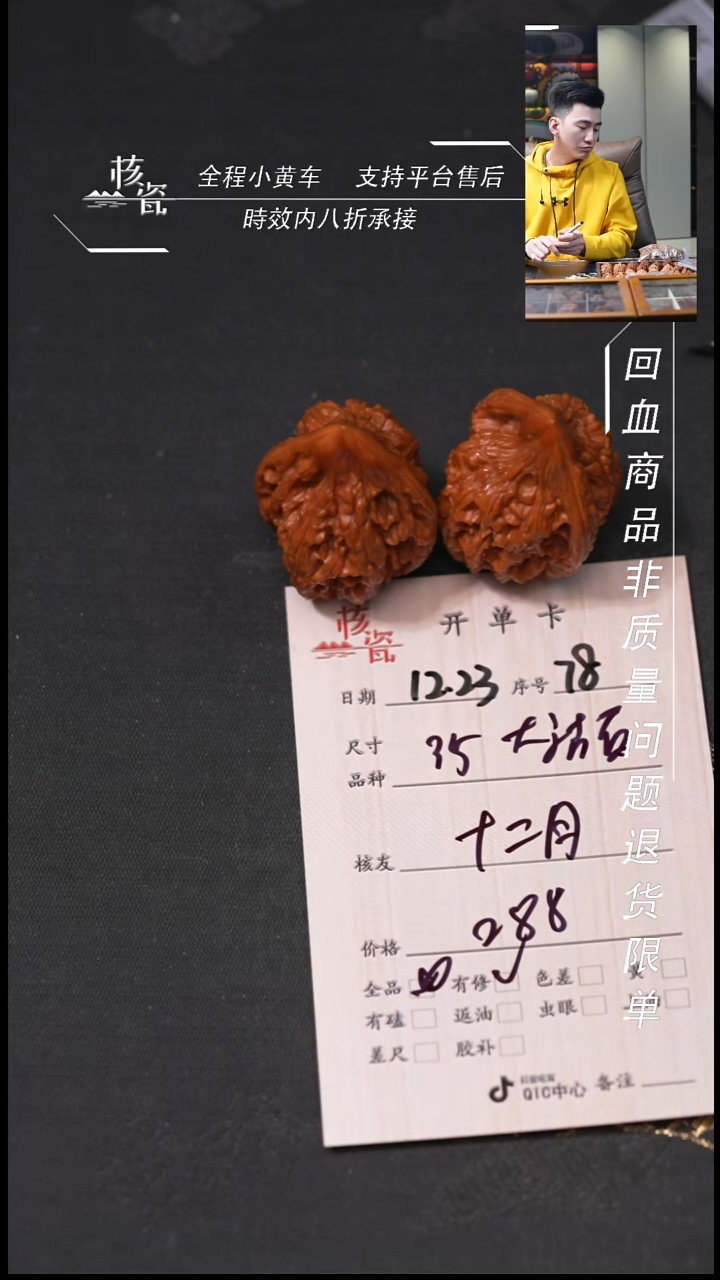 核瓷
全程小黄车 支持平台售后
時效内八折承接
回血商品非质量问题退货限单
核瓷
开单卡
日期 12.23 序号 78
尺寸 35
品种
核友 十二月
价格 288
全品 有修 色差
有磕 返油 虫眼
差尺 胶补
QIC中心 备注